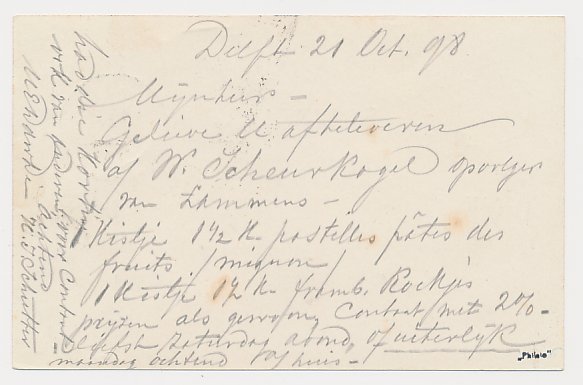 Delft 21 Oct. 98
Mijnheer –
Gelieve U af te leveren
af W. Scheurkogel opvolger
van Lammens –
1 Kistje 1½ K pastilles pâtes des
fruits /mignon/
1 Kistje 1½ K framb. Rockjes
prijzen als gewoon, Contant met 2%
liefst zaturdag avond, of uiterlijk
maandag ochtend a/ huis –
voor Contant
Achtend
"Philato"